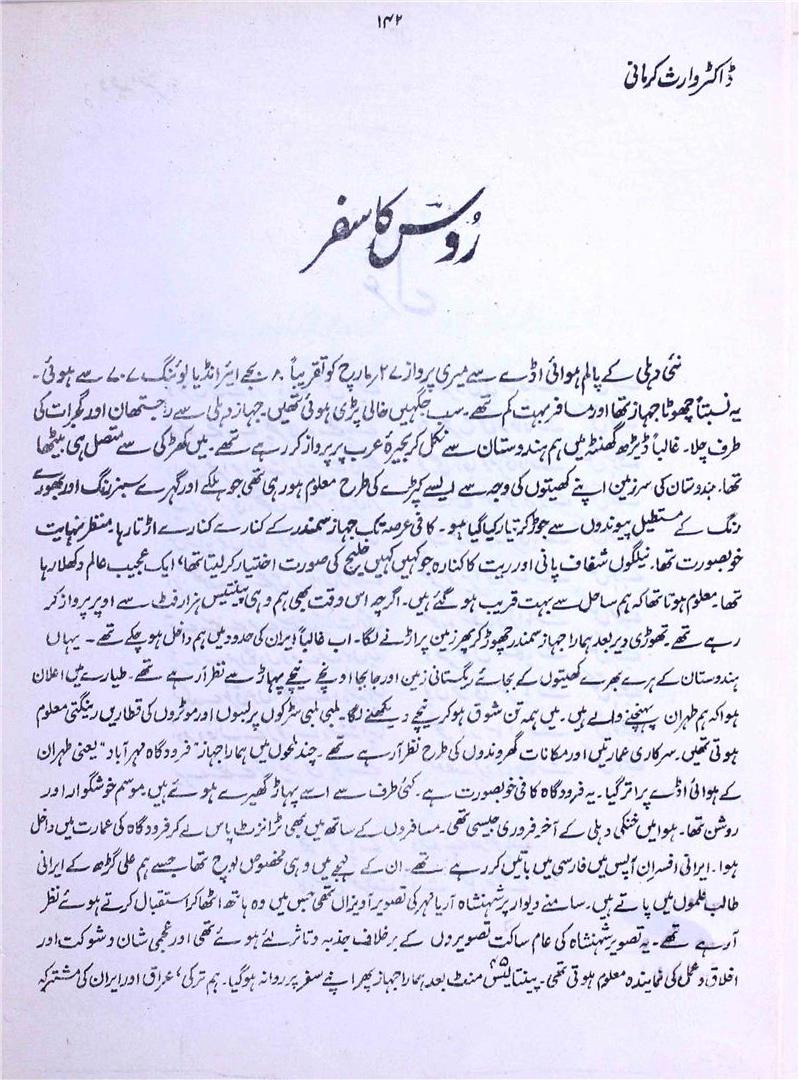 ۱۴۲
ڈاکٹر وارث کرمانی
رُوس کا سفر
نئی دہلی کے پالم ہوائی اڈے سے میری پرواز ۲۷؍مارچ کو تقریباً ۸ بجے ایر انڈیا بوئنگ ۷۰۷ سے ہوئی۔
یہ نسبتاً چھوٹا جہاز تھا اور مسافر بہت کم تھے۔ سب جگہیں خالی پڑی ہوئی تھیں۔ جہاز دہلی سے راجستھان اور گجرات کی
طرف چلا۔ غالباً ڈیڑھ گھنٹہ میں ہم ہندوستان سے نکل کر بحیرۂ عرب پر پرواز کر رہے تھے۔ میں کھڑکی سے متصل ہی بیٹھا
تھا۔ ہندوستان کی سرزمین اپنے کھیتوں کی وجہ سے ایسے کپڑے کی طرح معلوم ہو رہی تھی جو ہلکے اور گہرے سبز رنگ اور بھورے
رنگ کے مستطیل پیوندوں سے جوڑ کر تیار کیا گیا ہو۔ کافی عرصہ تک جہاز سمندر کے کنارے کنارے اڑتا رہا۔ منظر نہایت
خوبصورت تھا۔ نیلگوں شفاف پانی اور ریت کا کنارہ جو کہیں کہیں خلیج کی صورت اختیار کر لیتا تھا، ایک عجیب عالم دکھلا رہا
تھا۔ معلوم ہوتا تھا کہ ہم ساحل سے بہت قریب ہو گئے ہیں۔ اگرچہ اس وقت بھی ہم وہی پینتیس ہزار فٹ سے اوپر پرواز کر
رہے تھے۔ تھوڑی دیر بعد ہمارا جہاز سمندر چھوڑ کر پھر زمین پر اڑنے لگا۔ اب غالباً ایران کی حدود میں ہم داخل ہو چکے تھے۔ یہاں
ہندوستان کے ہرے بھرے کھیتوں کے بجائے ریگستانی زمین اور جابجا اونچے نیچے پہاڑ سے نظر آ رہے تھے۔ طیارے میں اعلان
ہوا کہ ہم طہران پہنچنے والے ہیں۔ میں ہمہ تن شوق ہو کر نیچے دیکھنے لگا۔ لمبی لمبی سڑکوں پر بسوں اور موٹروں کی قطاریں رینگتی معلوم
ہوتی تھیں۔ سرکاری عمارتیں اور مکانات گھروندوں کی طرح نظر آ رہے تھے۔ چند لمحوں میں ہمارا جہاز "فرودگاہ مہرآباد" یعنی طہران
کے ہوائی اڈے پر اتر گیا۔ یہ فرودگاہ کافی خوبصورت ہے۔ کئی طرف سے اسے پہاڑ گھیرے ہوئے ہیں۔ موسم خوشگوار اور
روشن تھا۔ ہوا میں خنکی دہلی کے آخر فروری جیسی تھی۔ مسافروں کے ساتھ میں بھی ٹرانزٹ پاس لے کر فرودگاہ کی عمارت میں داخل
ہوا۔ ایرانی افسران آپس میں فارسی میں باتیں کر رہے تھے۔ ان کے لہجے میں وہی مخصوص لوچ تھا جسے ہم علی گڑھ کے ایرانی
طالب علموں میں پاتے ہیں۔ سامنے دیوار پر شہنشاہ آریامہر کی تصویر آویزاں تھی جس میں وہ ہاتھ اٹھا کر استقبال کرتے ہوئے نظر
آ رہے تھے۔ یہ تصویر شہنشاہ کی عام ساکت تصویروں کے برخلاف جذبہ و تاثر لئے ہوئے تھی اور عجمی شان و شوکت اور
اخلاق و عمل کی نمایندہ معلوم ہوتی تھی۔ پینتالیس ۴۵ منٹ بعد ہمارا جہاز پھر اپنے سفر پر روانہ ہو گیا۔ ہم ترکی، عراق اور ایران کی مشترکہ